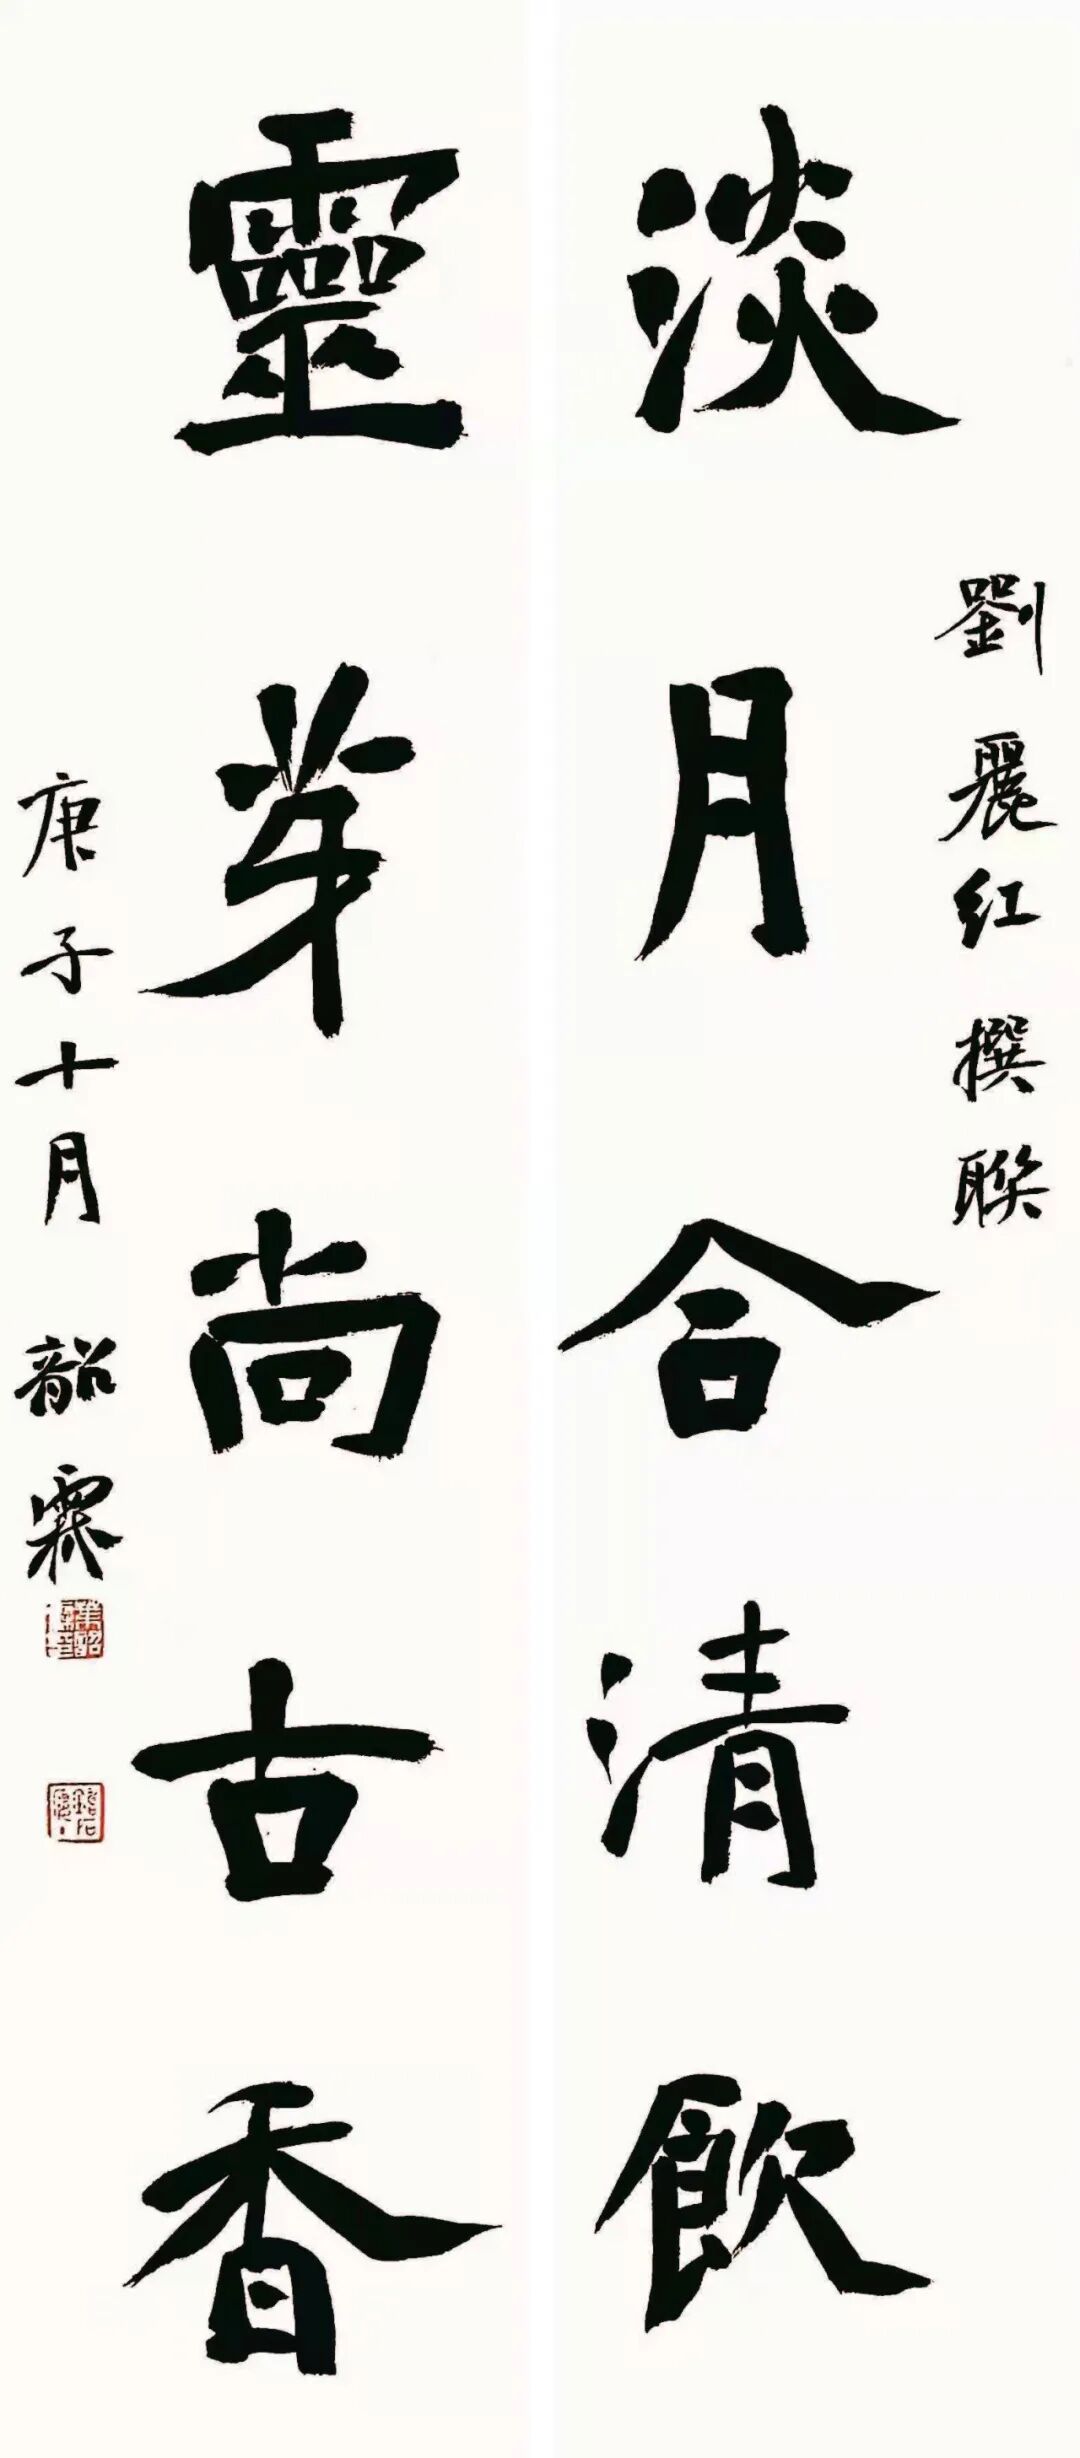 劉麗红撰聯
淡月合清飲
靈芽尚古香
庚子十月 韶霖